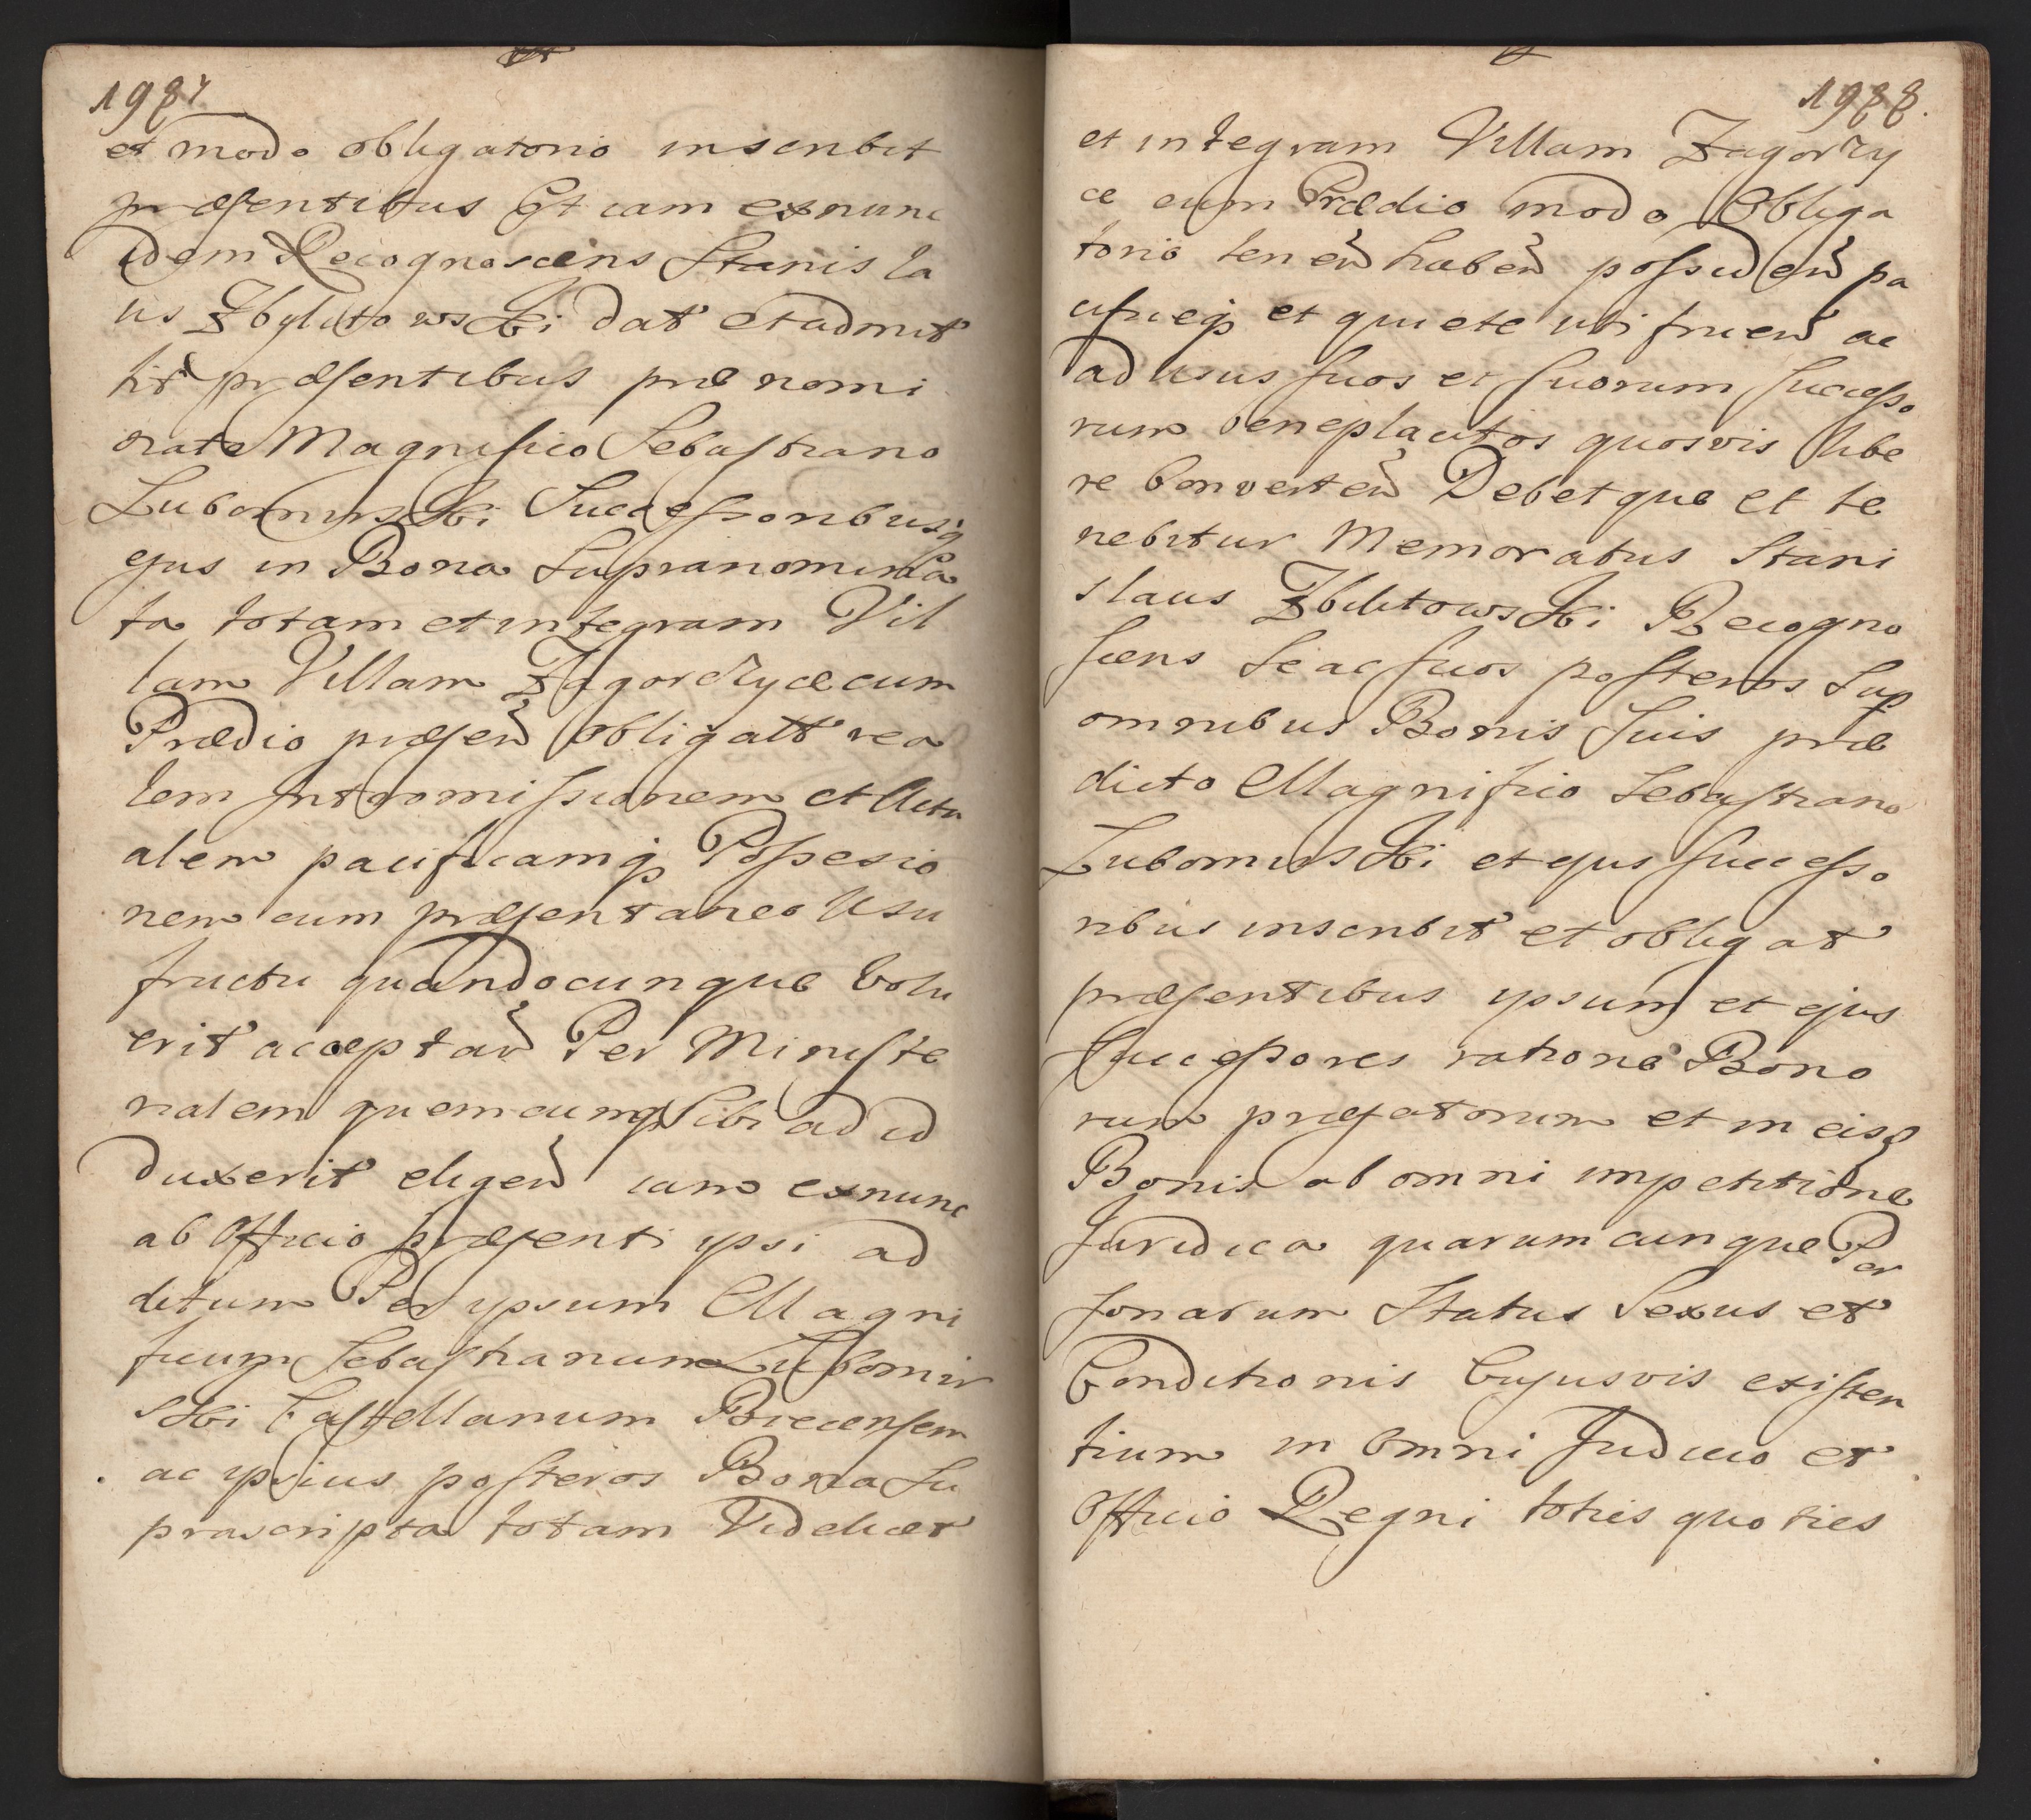 1987
et modo obligatorio inscribit
præsentibus Et iam exnunc
idem Recognoscens Stanisla
us Zbylitowski dat et admit
tit præsentibus prænomi
nato Magnifico Sebastiano
Lubomirski Successoribusq
ejus in Bona Supranomina
ta totam et integram Vil
lam Villam Zagorzyce cum
Prædio præsen obligatt rea
lem Intromissionem et Actu
alem pacificamq Possesio
nem cum præsentaneo Usu
fructu quandocunque Volu
erit acceptan Per Ministe
rialem quemcumq Sibi ad id
duxerit eligen iam exnunc
ab Officio præsenti ypsi ad
ditum Per ypsum Magni
ficum Sebastianum Lubomir
ski Castellanum Biecensem
ac ypsius posteros Bona Su
prascripta totam Videlicet
1988.
et integram Villam Zagorzy
ce cum Prædio modo Obliga
torio tenen haben possiden pa
cificeq et quiete uti fruen ac
ad usus suos et suorum Successo
rum beneplacitos quosvis libe
re Converten Debetque et te
nebitur Memoratus Stani
slaus Zbilitowski Recogno
scens Se ac suos posteros Sup
omnibus Bonis Suis præ
dicto Magnifico Sebastiano
Lubomirski et ejus Successo
ribus inscribit et obligat
præsentibus ypsum et ejus
Successores ratione Bono
rum præfatorum et in eisd
Bonis ab omni impetitione
Juridica quarumcunque Per
sonarum Status Sexus et
Conditionis Cujusvis existen
tium in Omni Judicio et
Officio Regni toties quoties